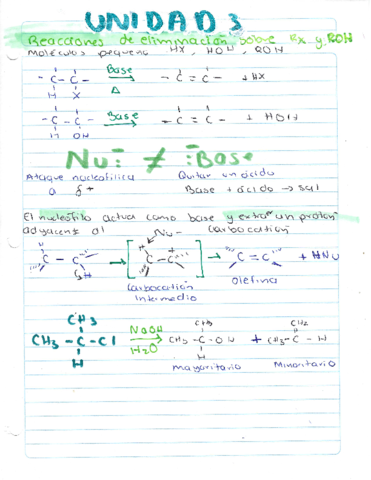 UNIDAD 3
Reacciones de eliminación sobre Rx y ROH
Moléculas pequeña HX, HOH, ROH
- C - C - Base Δ - C = C - + HX
H X
- C - C - Base - C = C - + HOH
H OH
Nu: ≠ :Base
Ataque nucleofílica Quitar un ácido
a δ+ Base + ácido → sal
El nucleófilo actua como base y extrae un protón
adyacent al carbocatión
Nu-
C - C → [ C - C + ] → C = C + HNu
H
Carbocatión Olefina
Intermedio
CH3 CH3 CH2
CH3 - C - Cl NaOH H2O CH3 - C - OH + CH3 - C - H
H H
mayoritario Minoritario